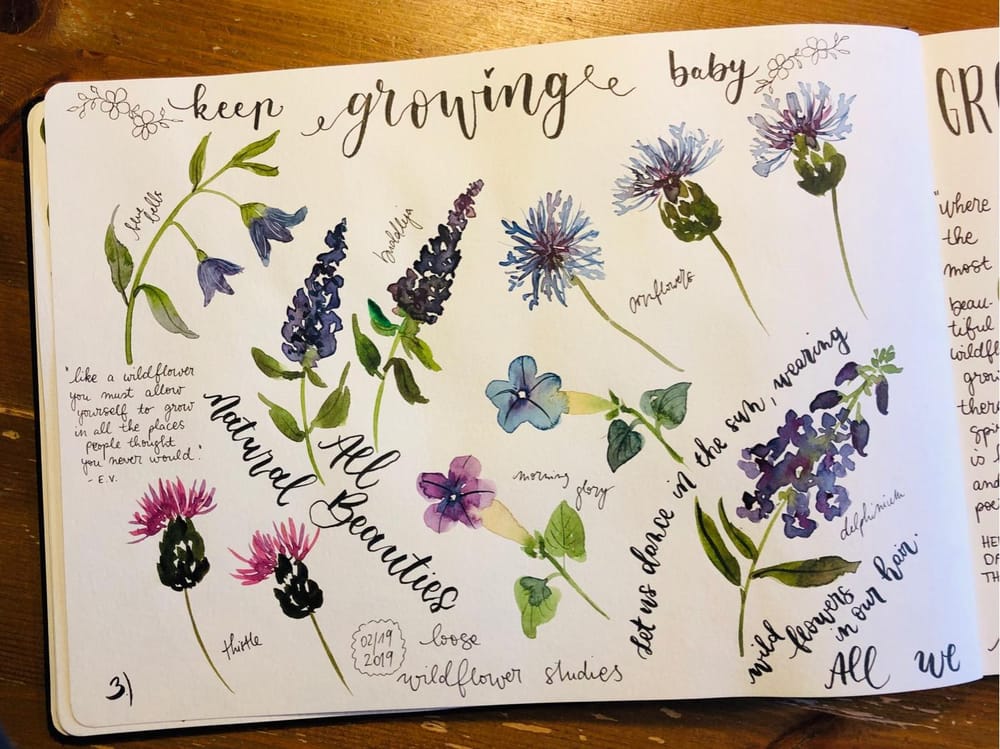 keep growing baby
blue bells
buddleja
cornflowers
"like a wildflower
you must allow
yourself to grow
in all the places
people thought
you never would."
- E.V.
All
Natural Beauties
morning glory
let us dance in the sun, wearing
wild flowers
in our hair.
delphinium
thistle
02/19
2019
loose
wildflower studies
All we
3.)
GR
"where
the
most
beau-
tiful
wildfl
grow
ther
spi
is
and
poe
HE
DA
TH